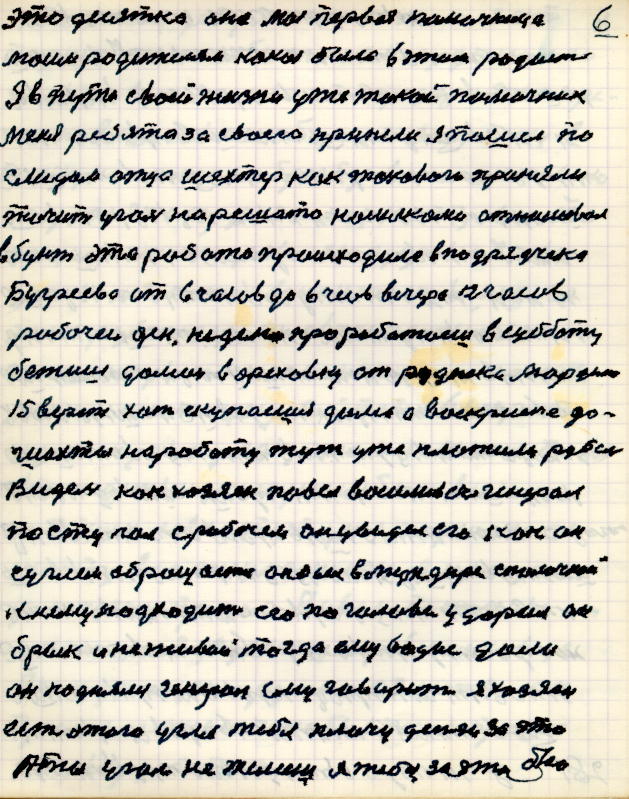 6
Это десятка она моя первая памочница
моим родителям какая была в этим радист
Я в пути свои жизни уже такой памочник
Меня ребята за своего приняли я пошел по
следам отца шахтер как таковой приняли
точит угол на решото
в бунт эта работа происходила в подрядчека
Бугреево от 6 часов до 6 часв вечера 12 часов
рабочей ден, неделю проработаеш в суботу
бежиш домой в ореховку от рудника
15 верст хот искупаешся дома а воскрисене до-
шахты на работу тут уже платили рубел
Видел как хозяен повел
поступал с рабочем он увидел его как он
с углем обращаетя он был в мундере с палочкой
к нему подходит его по галове ударил он
брык и не живой тогда ему воды дали
он подняли генерал ему говорит я хозяен
ест этого угля тебе плачу денги за это
А ты угол не желееш я тебе за это бю